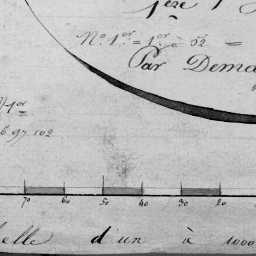 1ère
N.o 1.er = 1.er à 52 =
Par Dema
1er
6.97.102
70 60 50 40 30 20
helle d'un à 1000